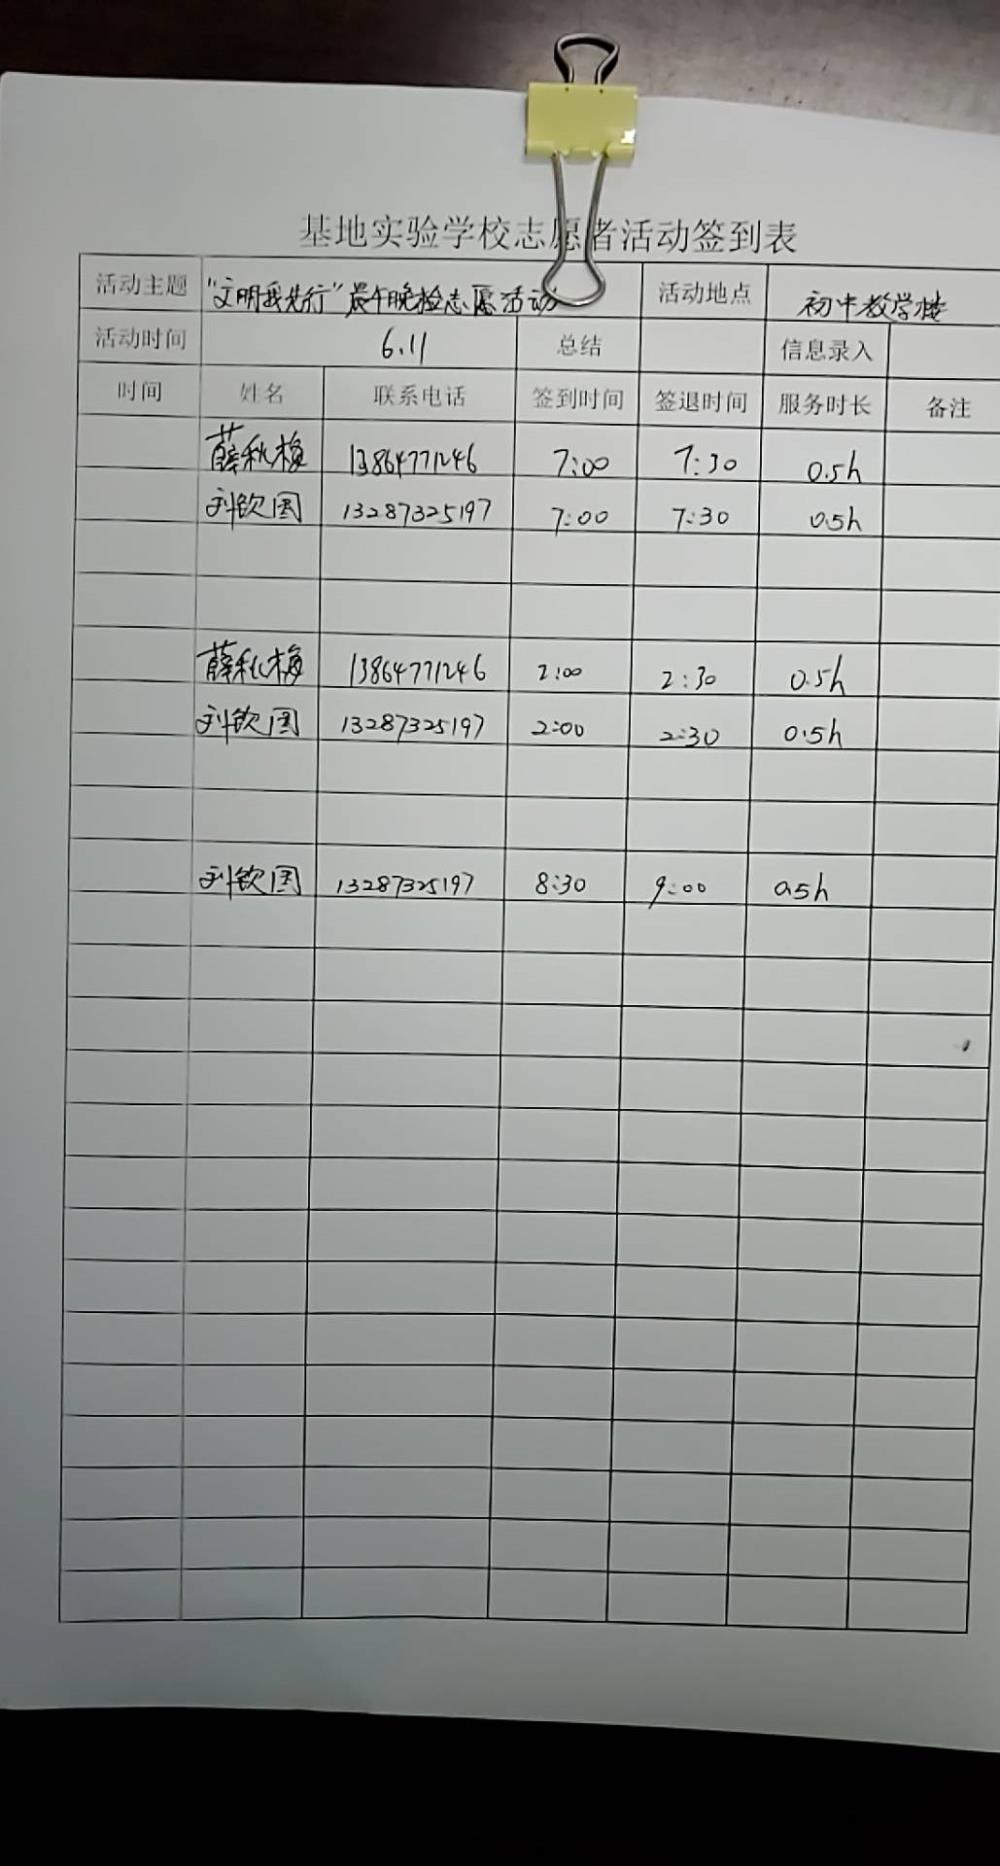 基地实验学校志愿者活动签到表
活动主题 "文明我先行"晨午晚检志愿活动 活动地点 初中教学楼
活动时间 6.11 总结 信息录入
时间 姓名 联系电话 签到时间 签退时间 服务时长 备注
薛秋梅 13864771246 7:00 7:30 0.5h
刘钦国 13287325197 7:00 7:30 0.5h
薛秋梅 13864771246 2:00 2:30 0.5h
刘钦国 13287325197 2:00 2:30 0.5h
刘钦国 13287325197 8:30 9:00 0.5h